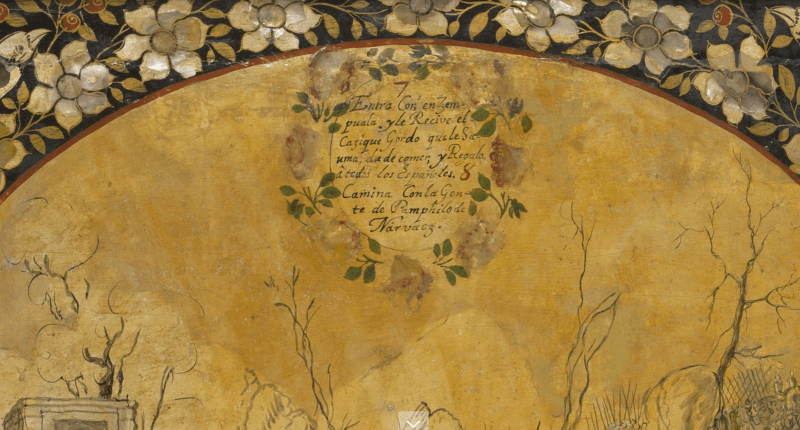 7
Entra Cor. en Zem-
puala, y le Recive el
Cazique Gordo que le Sa-
uma, da de comer, y Regala
à todos los Españoles. 8
Camina Con la Gen-
te de Pamphilo de
Narvaez.